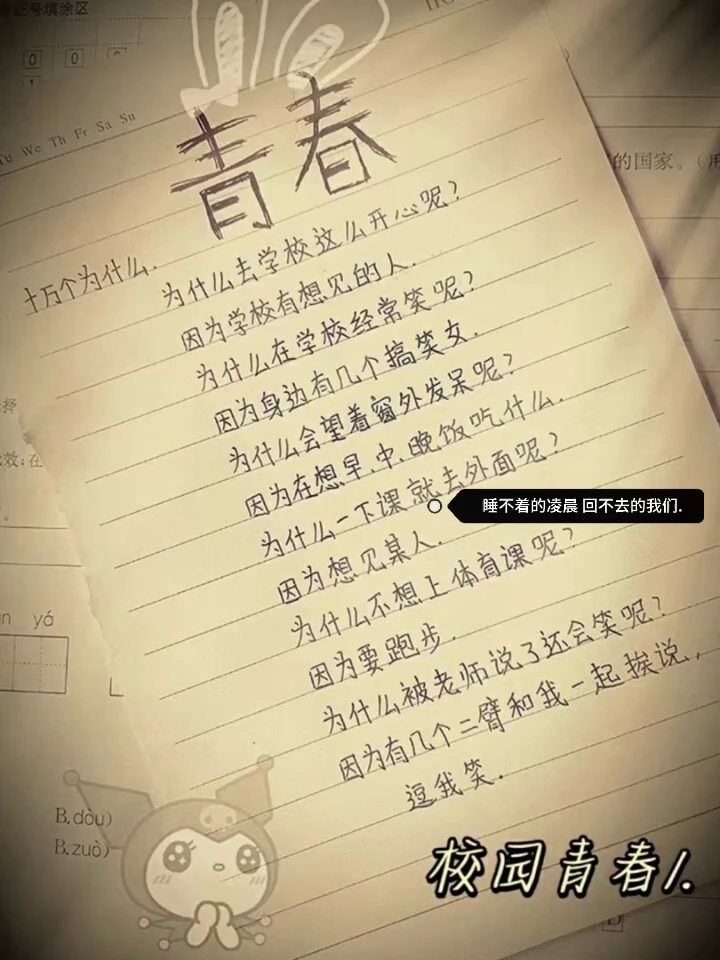 证号填涂区
0 0 0
We Th Fr Sa Su
的国家。(用
青春
十万个为什么.
为什么去学校这么开心呢?
因为学校有想见的人.
为什么在学校经常笑呢?
因为身边有几个搞笑女.
为什么会望着窗外发呆呢?
因为在想早.中.晚饭吃什么.
为什么一下课就去外面呢?
睡不着的凌晨 回不去的我们.
因为想见某人.
为什么不想上体育课呢?
因为要跑步.
为什么被老师说了还会笑呢?
因为有几个二臂和我一起挨说,
逗我笑.
择
效:在
yá
B.dòu)
B.zuò)
校园青春/.